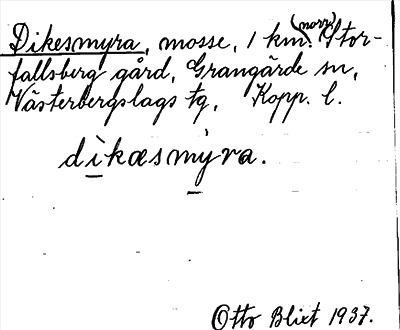 Dikesmyra, mosse, 1 km. (norr) Stor-
fallsberg gård, Grangärde sn,
Västerbergslags tg, Kopp. l.
dìkæsmỳra.
Otto Blixt 1937.